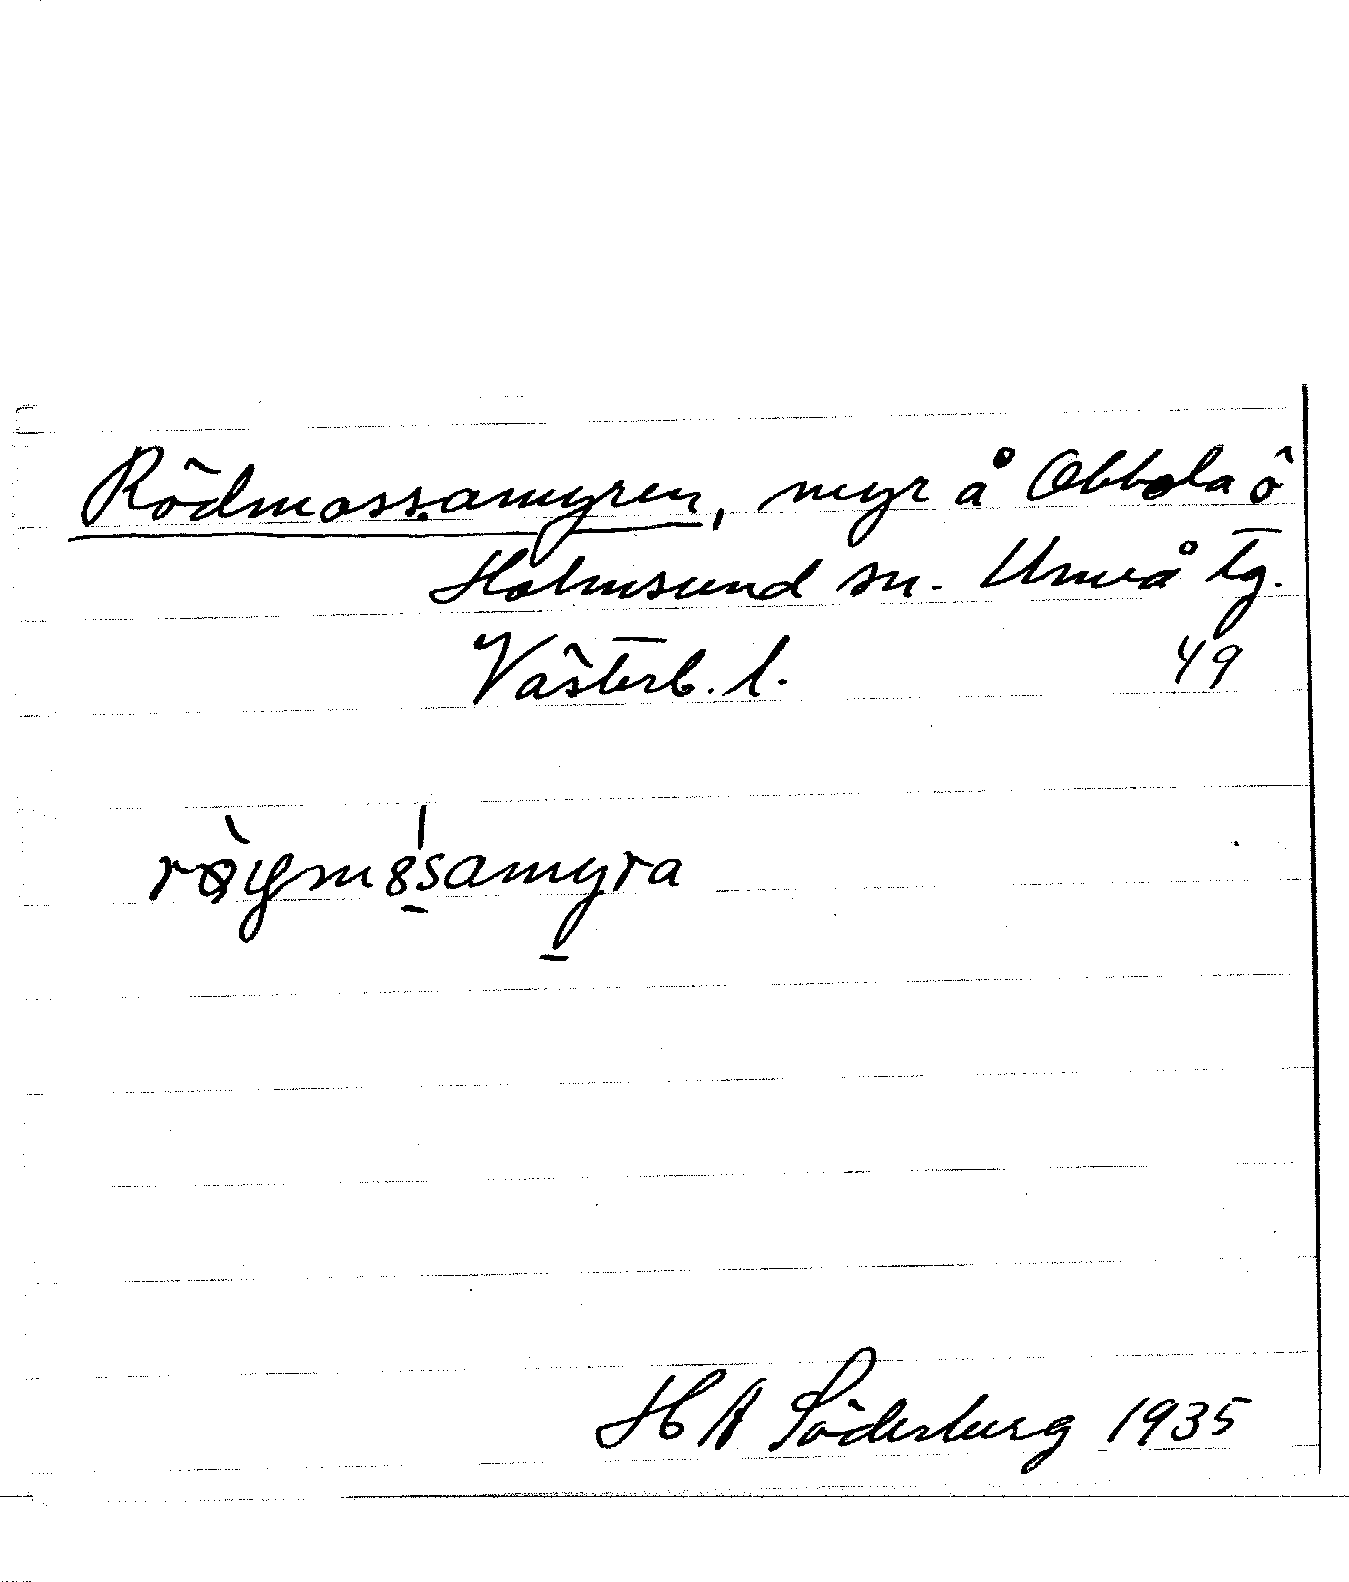 Rödmossamyren, myr å Obbola ö
Holmsund sn. Umeå tg.
Västerb. l. 49
H A Söderberg 1935